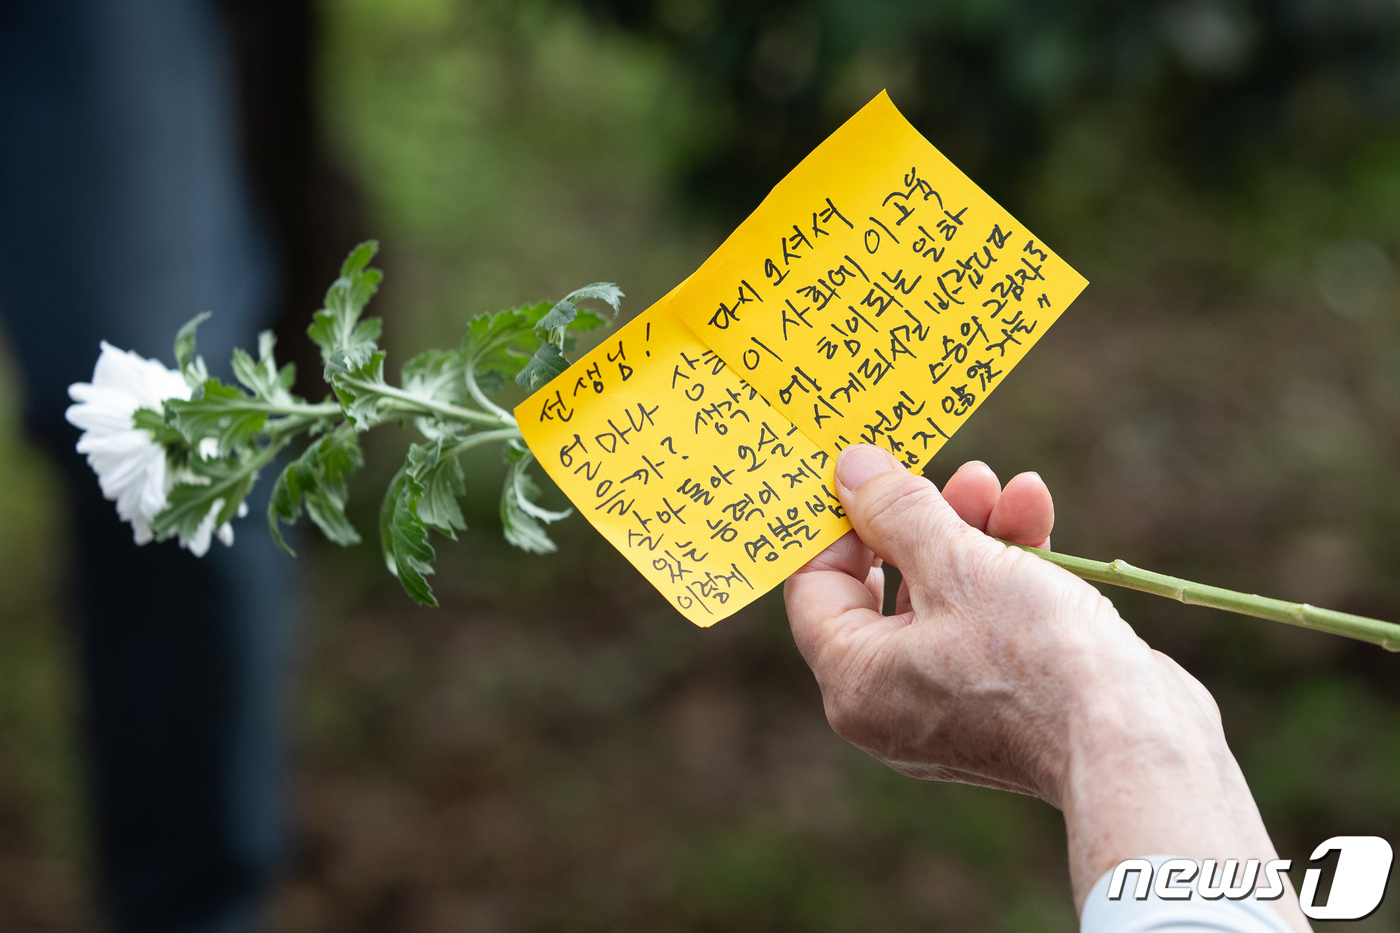 선생님!
얼마나
을까? 생각
살아 돌아 오실
있는 능력이 제
이렇게 명복을 빕
다시 오셔셔
이 사회에 이 교육
에 힘이되는 일하
시게되시길 바랍니다
전엔 스승의 그림자도
지 않았거늘"
news1